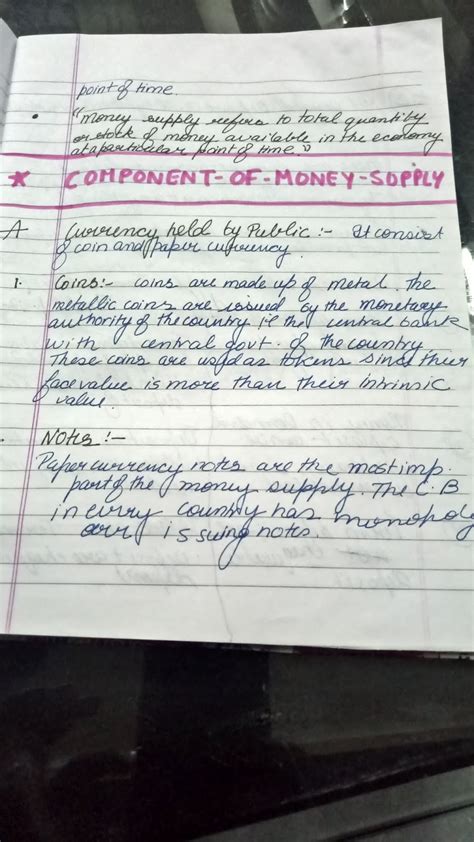 point of time.
• "money supply refers to total quantity
or stock of money available in the economy
at a particular point of time."
* COMPONENT-OF-MONEY-SUPPLY
A Currency held by Public :- It consist
of coin and paper currency.
1. Coins:- coins are made up of metal. The
metallic coins are issued by the monetary
authority of the country i.e the central bank
with central govt. of the country
These coins are used as tokens since their
face value is more than their intrinsic
value.
. Notes :-
Paper currency notes are the most imp.
part of the money supply. The C.B
in every country has monopoly
over issuing notes.